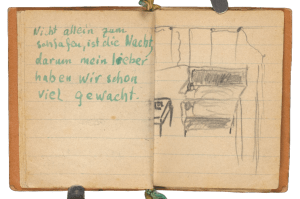 Nicht allein zum
 ist die Nacht,
darum mein lieber
haben wir schon
viel gewacht.